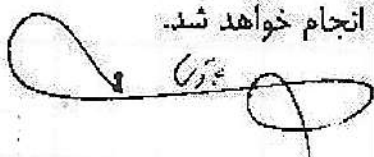 انجام خواهد شد.